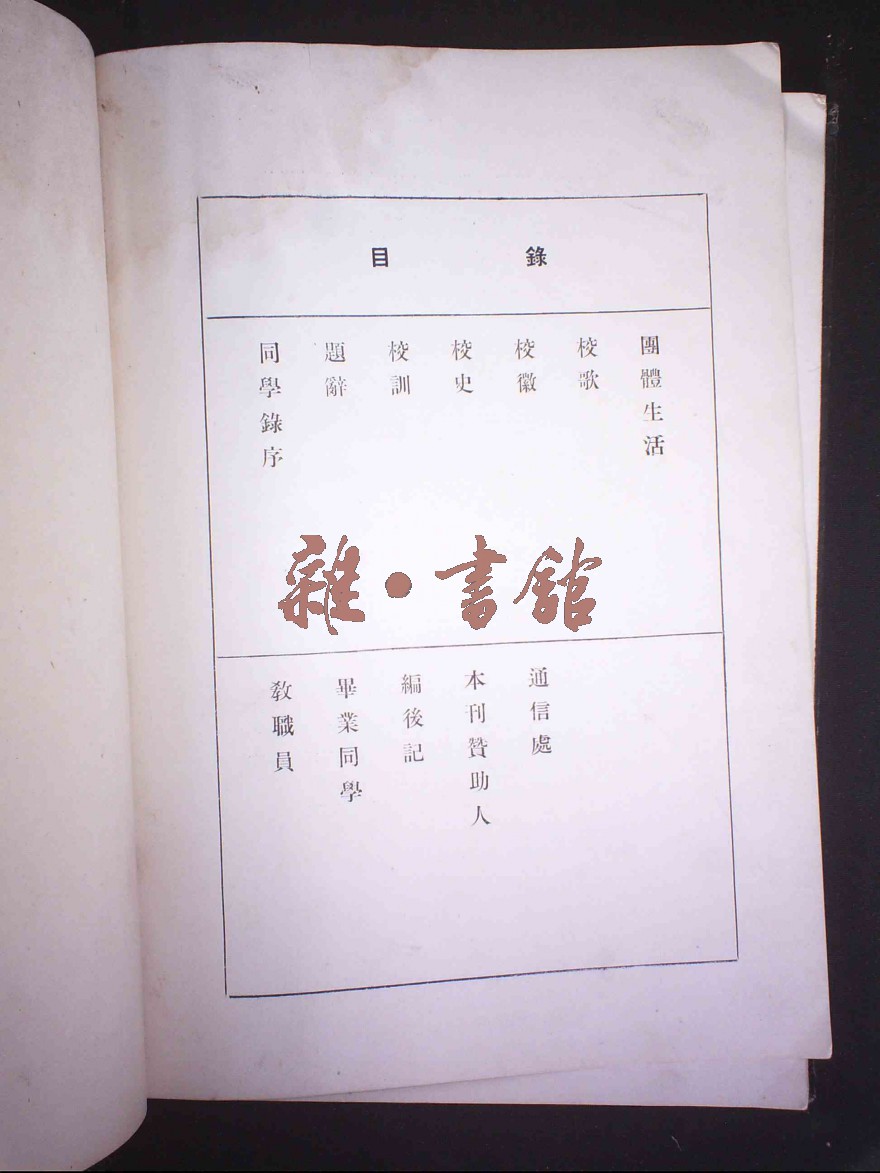 目錄
同學錄序
題辭
校訓
校史
校徽
校歌
團體生活
雜·書館
教職員
畢業同學
編後記
本刊贊助人
通信處